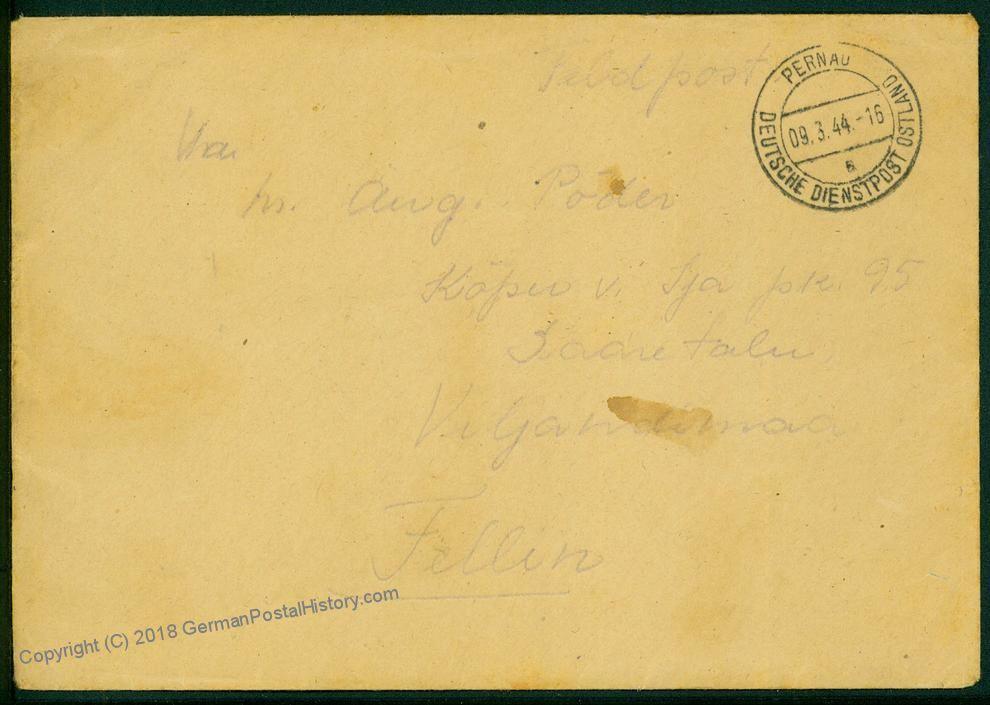 Feldpost
PERNAU
09.3.44.-16
a
DEUTSCHE DIENSTPOST OSTLAND
hr. Aug. Põder
Kõpu v. Sja pk. 95
talu,
Viljandimaa
Fellin
Copyright (C) 2018 GermanPostalHistory.com